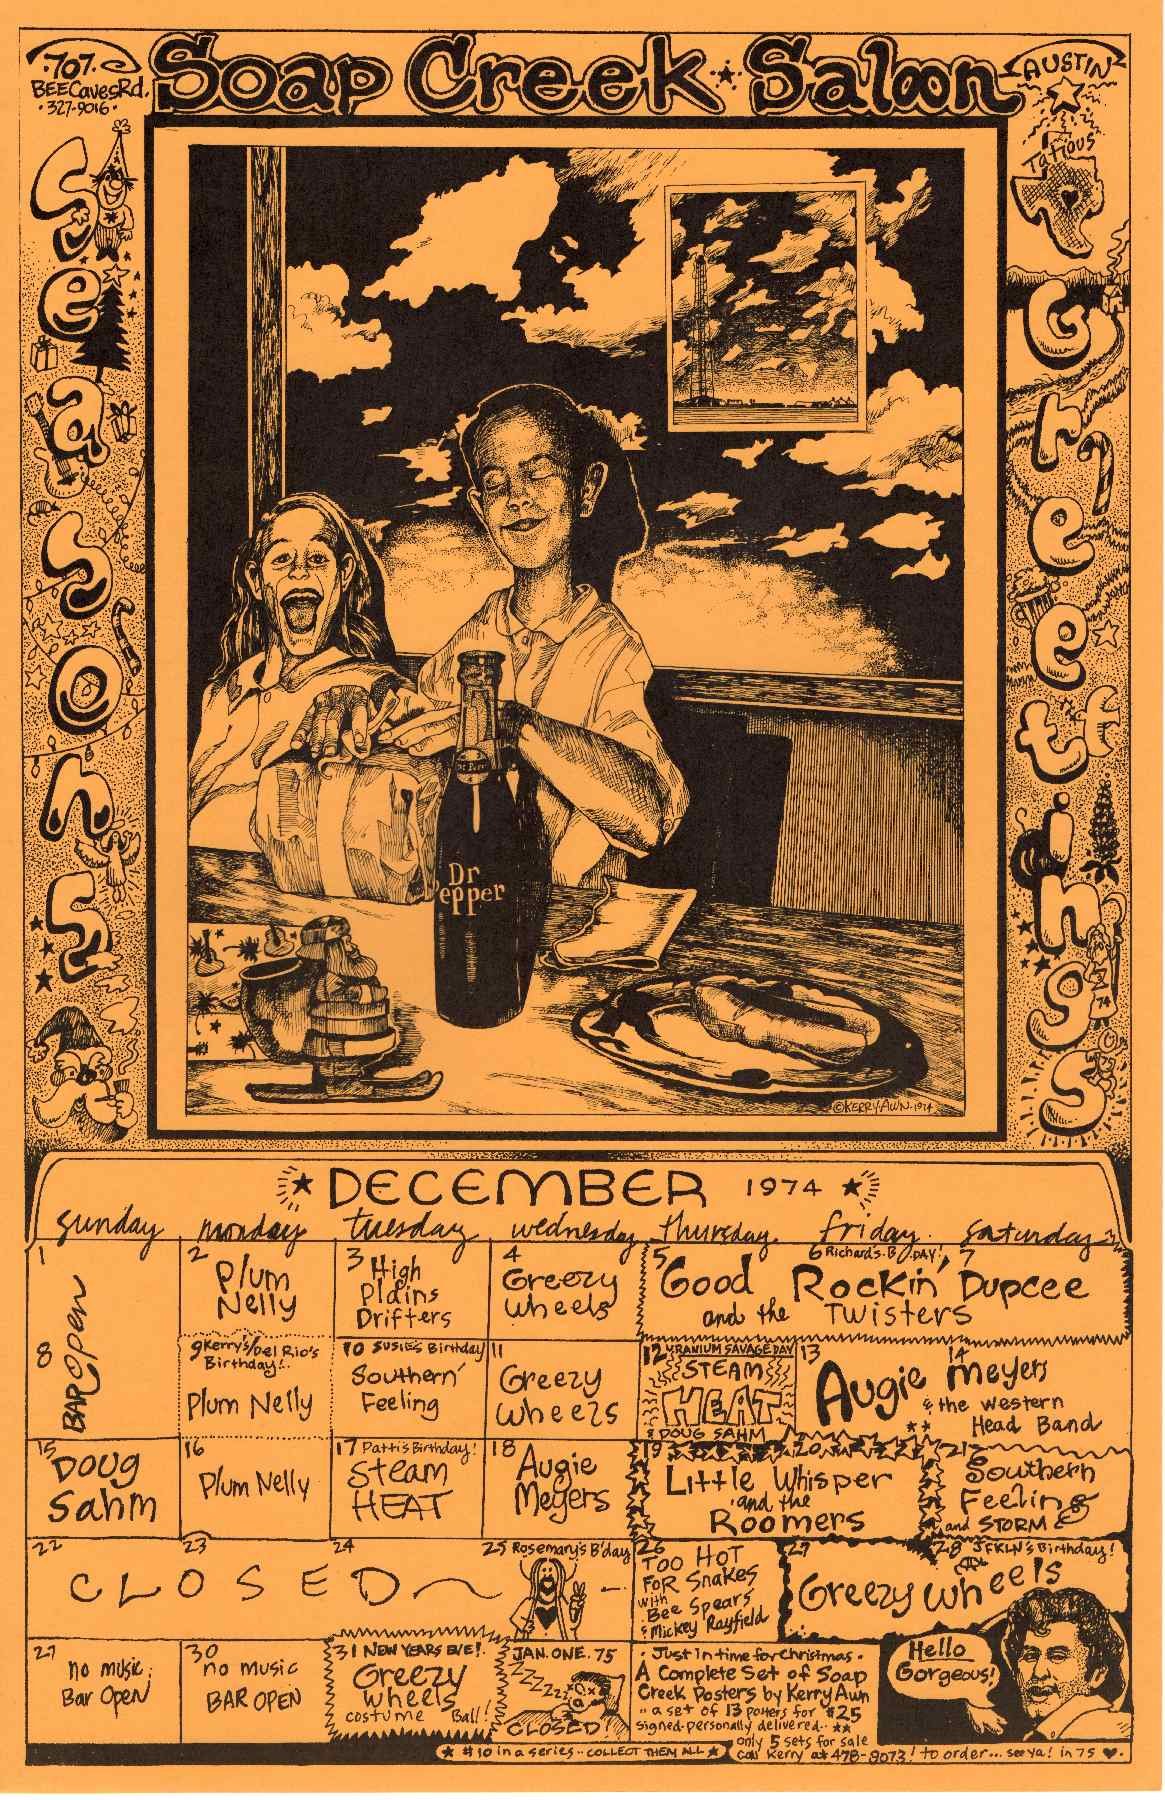 ·707·
BEE Caves Rd.
·327-9016·
Soap Creek ★ Saloon
AUSTIN
Seasons
Tattous
Greetings
74
Dr Pepper
Dr
Pepper
©KERRY AWN·1974
★ DECEMBER 1974 ★
sunday monday tuesday wednesday thursday friday saturday
1
BAR Open
2
Plum
Nelly
3 High
Plains
Drifters
4
Greezy
wheels
5 6 Richard's B.DAY! 7
Good Rockin' Dupcee
and the Twisters
8
9 Kerry's/Del Rio's
Birthday!..
Plum Nelly
10 SUSIE'S Birthday
Southern
Feeling
11
Greezy
wheels
12 URANIUM SAVAGE DAY
STEAM
HEAT
& DOUG SAHM
13 14
Augie Meyers
& the western
Head Band
★★
15
Doug
Sahm
16
Plum Nelly
17 Patti's Birthday!
Steam
HEAT
18
Augie
Meyers
19 20
Little Whisper
and the
Roomers
21
Southern
Feeling
and STORM
22 23 24
CLOSED
25 Rosemary's B'day
26
TOO HOT
FOR Snakes
with
Bee Spears
& Mickey Rayfield
27 28 JFKLN's Birthday!
Greezy wheels
27
no music
Bar Open
30
no music
BAR OPEN
31 NEW YEARS EVE!
Greezy
wheels
costume Ball!
JAN. ONE. 75
ZZZZZ
CLOSED!
· Just in time for Christmas ·
A Complete Set of Soap
Creek Posters by Kerry Awn
·· a set of 13 posters for $25
signed·personally delivered·· ★★
only 5 sets for sale
call Kerry at 478-9073! to order... see ya! in 75 ♥.
Hello
Gorgeous!
★ #10 in a series·· COLLECT THEM ALL ★